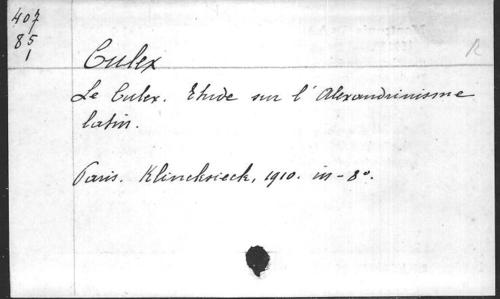 407
85
1
Culex
R
Le Culex. Etude sur l'Alexandrinisme
latin.
Paris. Klincksieck, 1910. in-8°.